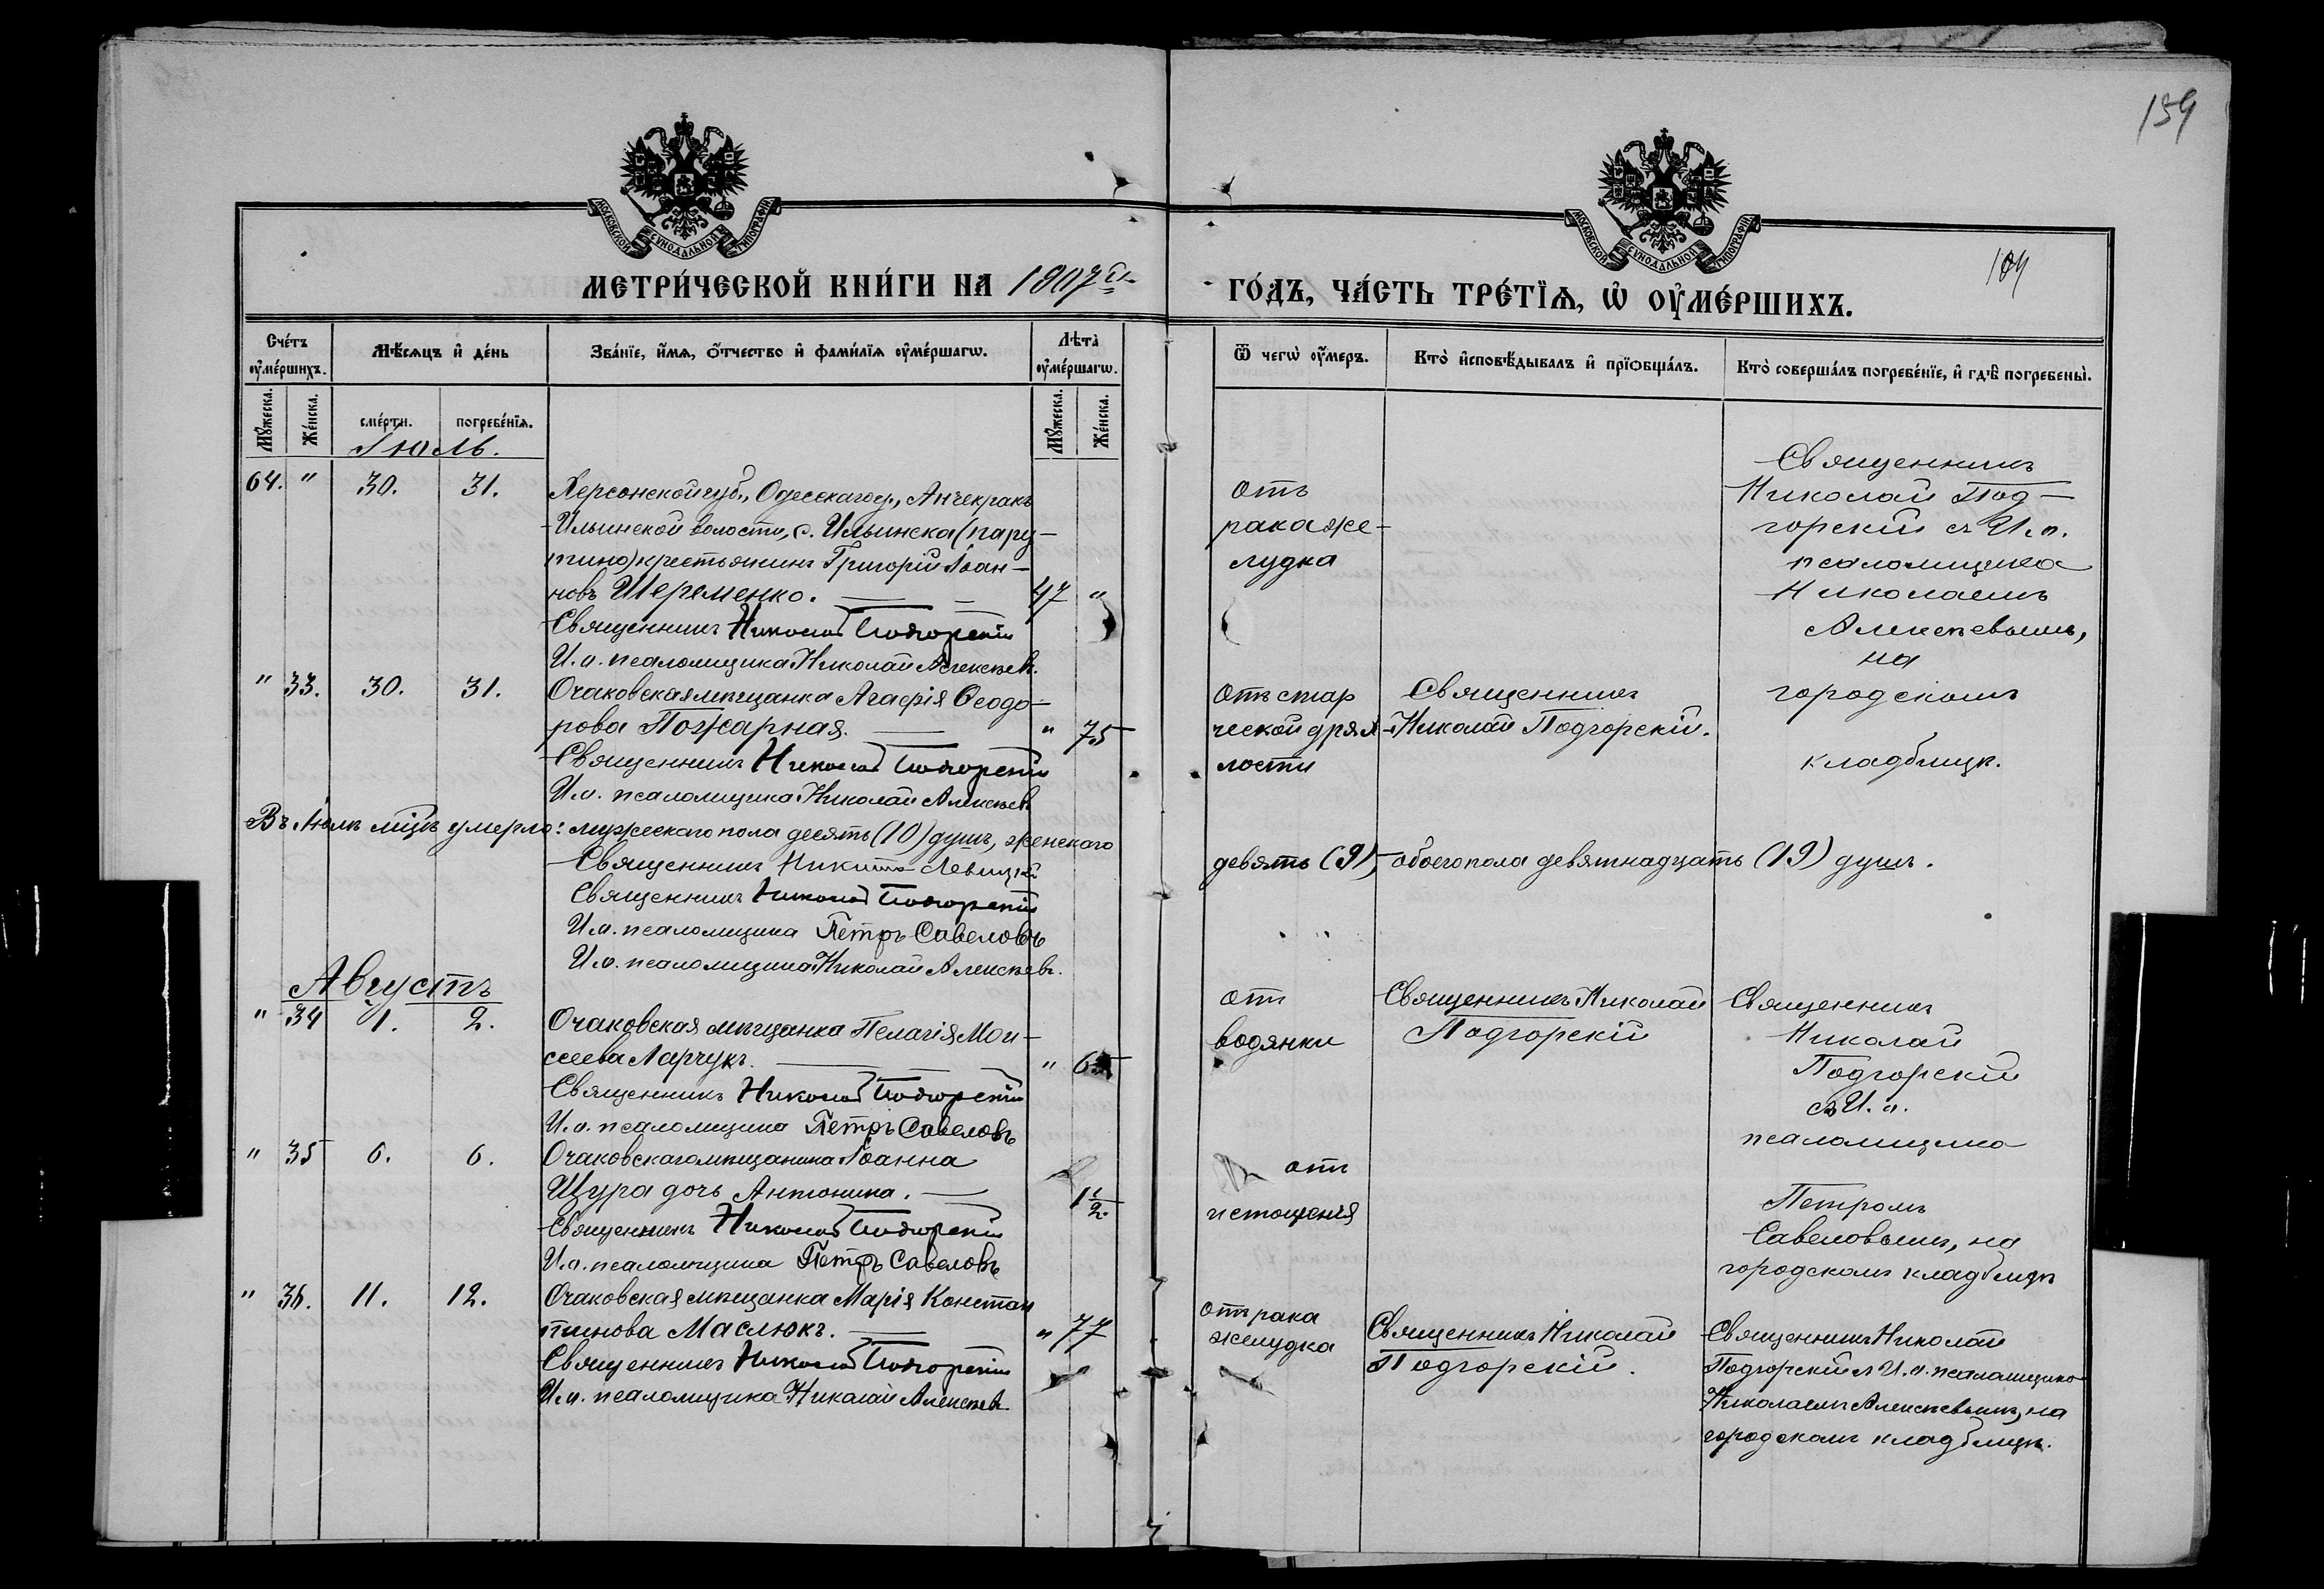 159
МОСКОВСКОЙ СѴНОДАЛЬНОЙ ТИПОГРАФІИ
МОСКОВСКОЙ СѴНОДАЛЬНОЙ ТИПОГРАФІИ
МЕТРИ́ЧЕСКОЙ КНИ́ГИ НА 1907й
ГО́ДЪ, ЧА́СТЬ ТРЕ́ТЇѦ, Ѡ҆ ОУ҆МЕ́РШИХЪ.
104
Сче́тъ оу҆ме́ршихъ.
Мѣ́сѧцъ и҆ де́нь
Зва́нїе, и҆́мѧ, ѻ҆́тчество и҆ фами́лїѧ оу҆ме́ршагѡ.
Лѣта̀ оу҆ме́ршагѡ.
Ѿ чегѡ̀ оу҆́меръ.
Кто̀ и҆сповѣ́дывалъ и҆ прїѻбща́лъ.
Кто̀ соверша́лъ погребе́нїе, и҆ гдѣ̀ погребены̀.
Мꙋ́жеска.
Же́нска.
сме́рти.
погребе́нїѧ.
Мꙋ́жеска.
Же́нска.
Іюль.
64. " 30. 31.
Херсонской губ., Одесскаго у., Анчекракъ
Ильинской волости, с. Ильинска (пару-
тино) крестьянинъ Григорій Іоан-
новъ Шеременко. — 47 "
Священникъ Николай Подгорскій
И. о. псаломщика Николай Алексѣевъ.
отъ
рака же-
лудка
Священникъ
Николай Под-
горскій съ И. о.
псаломщика
Николаемъ
Алексѣевымъ,
на
городскомъ
кладбищѣ.
" 33. 30. 31.
Очаковская мѣщанка Агафія Ѳеодо-
рова Пожарная. — " 75
Священникъ Николай Подгорскій
И. о. псаломщика Николай Алексѣевъ
отъ стар
ческой дрях
лости
Священникъ
Николай Подгорскій.
Въ Іюлѣ мцѣ умерло: мужескаго пола десять (10) душъ, женскаго
девять (9), обоего пола девятнадцать (19) душъ.
Священникъ Никита Левицкій
Священникъ Николай Подгорскій
И. о. псаломщика Петръ Савеловъ
И. о. псаломщика Николай Алексѣевъ.
Августъ
" 34 1. 2.
Очаковская мѣщанка Пелагія Мои-
сеева Ларчукъ. — " 65
Священникъ Николай Подгорскій
И. о. псаломщика Петръ Савеловъ
отъ
водянки
Священникъ Николай
Подгорскій
Священникъ
Николай
Подгорскій
съ И. о.
псаломщика
Петромъ
Савеловымъ, на
городскомъ кладбищѣ
" 35 6. 6.
Очаковскаго мѣщанина Іоанна
Щура дочь Антонина. — 1 1/2
Священникъ Николай Подгорскій
И. о. псаломщика Петръ Савеловъ
отъ
истощенія
" 36. 11. 12.
Очаковская мѣщанка Марія Констан
тинова Маслюкъ. — " 77
Священникъ Николай Подгорскій
И. о. псаломщика Николай Алексѣевъ
отъ рака
желудка
Священникъ Николай
Подгорскій.
Священникъ Николай
Подгорскій съ И. о. псаломщика
Николаемъ Алексѣевымъ, на
городскомъ кладбищѣ.